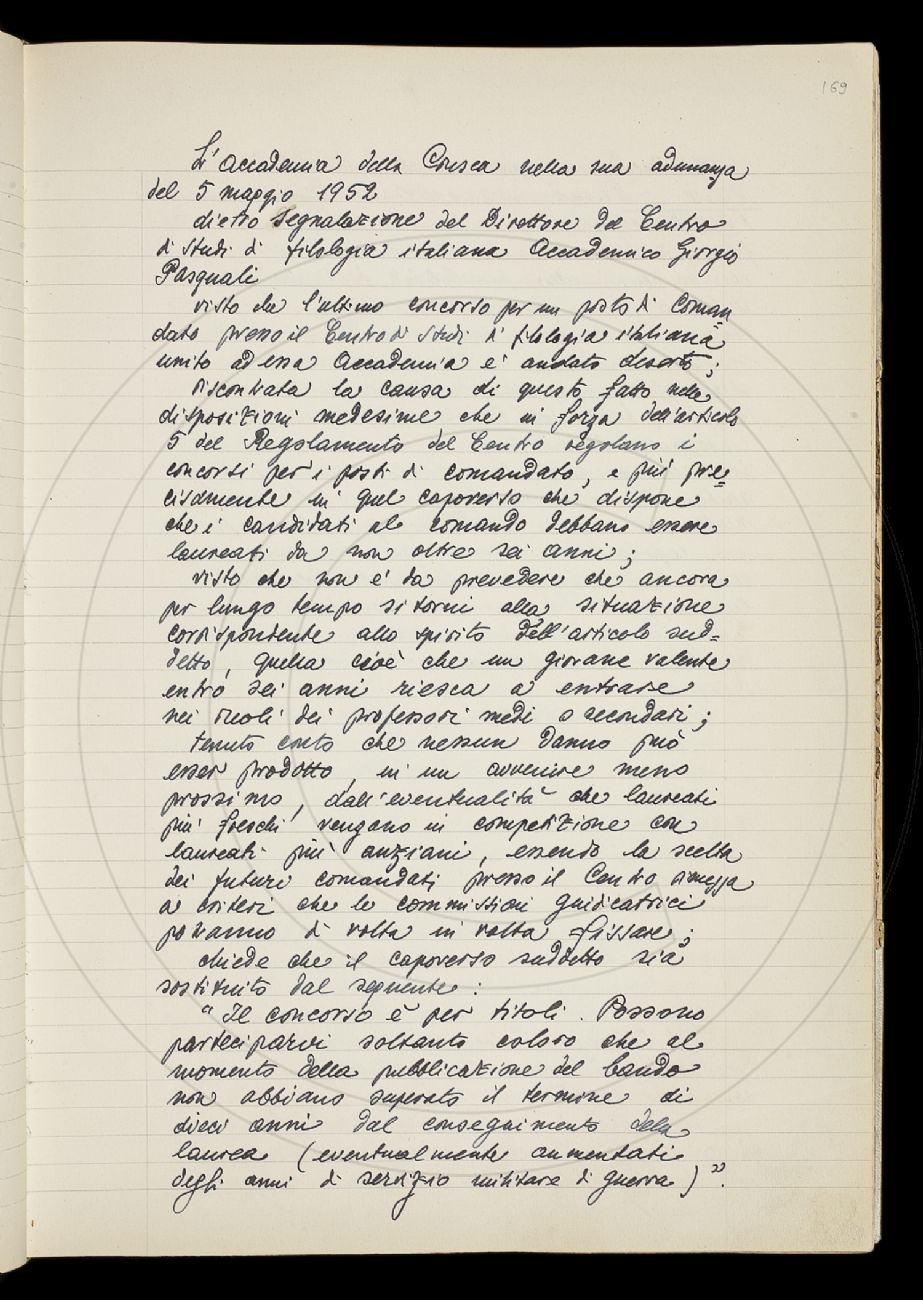 169
L'Accademia della Crusca nella sua adunanza
del 5 maggio 1952
dietro segnalazione del Direttore del Centro
di Studi di filologia italiana Accademico Giorgio
Pasquali
visto che l'ultimo concorso per un posto di Coman=
dato presso il Centro di Studi di filologia italiana
unito ad essa Accademia è andato deserto;
riscontrata la causa di questo fatto nelle
disposizioni medesime che in forza dell'articolo
5 del Regolamento del Centro regolano i
concorsi per i posti di comandato, e più pre=
cisamente in quel capoverso che dispone
che i candidati al comando debbano essere
laureati da non oltre sei anni;
visto che non è da prevedere che ancora
per lungo tempo si torni alla situazione
corrispondente allo spirito dell'articolo sud=
detto, quella cioè che un giovane valente
entro sei anni riesca a entrare
nei ruoli dei professori medi o secondari;
tenuto conto che nessun danno può
esser prodotto, in un avvenire meno
prossimo, dall'eventualità che laureati
più freschi vengano in competizione con
laureati più anziani, essendo la scelta
dei futuri comandati presso il Centro rimessa
a criteri che le commissioni giudicatrici
potranno di volta in volta fissare;
chiede che il capoverso suddetto sia
sostituito dal seguente:
"Il concorso è per titoli. Possono
parteciparvi soltanto coloro che al
momento della pubblicazione del bando
non abbiano superato il termine di
dieci anni dal conseguimento della
laurea (eventualmente aumentati
degli anni di servizio militare di guerra)".